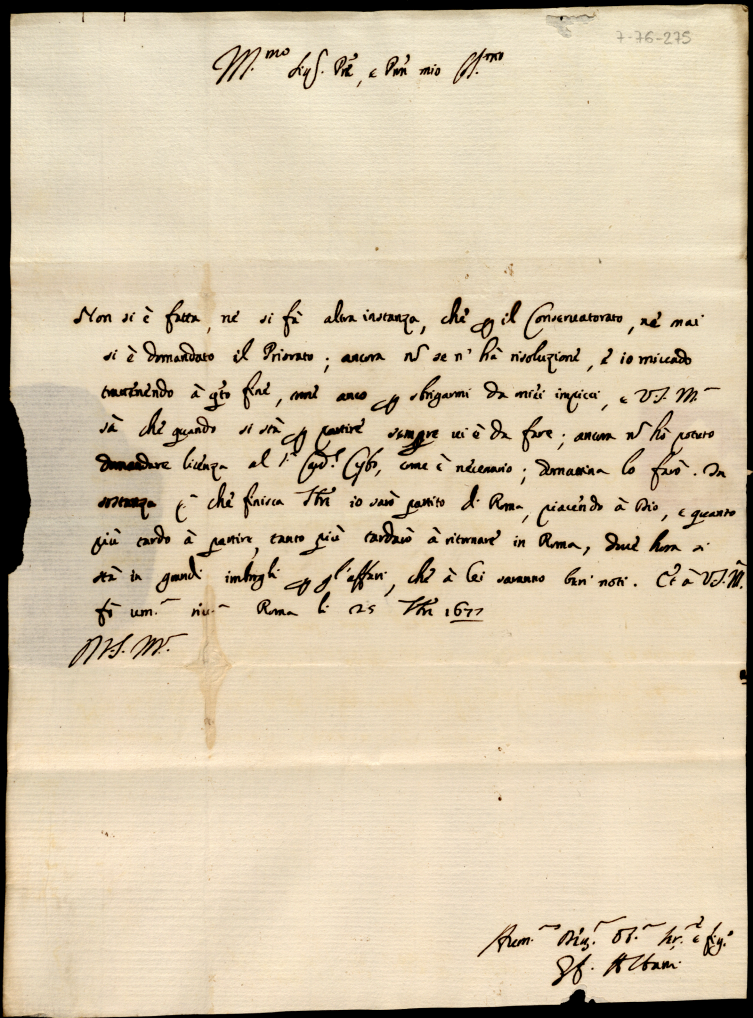 7-76-275
Ill.mo Sig. Pre, e Pron mio Oss.mo
Non si è fatta, ne si fà altra instanza, che p il Conservatorato, ne mai
si è domandato il Priorato; ancora nõ se n'hà risoluzione, e io mi vado
trattenendo à qto fine, come anco p sbrigarmi da miei impicci, e V.S. Ill.
sà che quando si stà p partire sempre vi è da fare; ancora nõ hò potuto
domandare licenza al Sr Card. Cybo, come è necessario; domattina lo farò. In
sostanza che finisca 7bre io sarò partito di Roma, piacendo à Dio, e quanto
più tardo à partire, tanto più tardarò à ritornare in Roma, dove hora si
stà in grandi imbrogli p gl'affari, che à lei saranno ben noti. Et à V.S. Ill.
fò um. riv. Roma li 25 7bre 1677
D V.S. Ill.
Hum. Div. Ob. Ser. e fig.
Albani